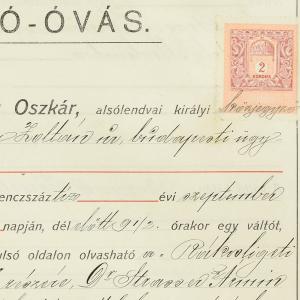 Ó-ÓVÁS.
2
KORONA
Oszkár, alsólendvai királyi közjegyző
Zoltán úr, budapesti ügy
enczszáz tíz évi szeptember
napján, dél előtt 9 1/2 órakor egy váltót,
ulsó oldalon olvasható a Rákosligeti
részén, Dr Strasser Ármin